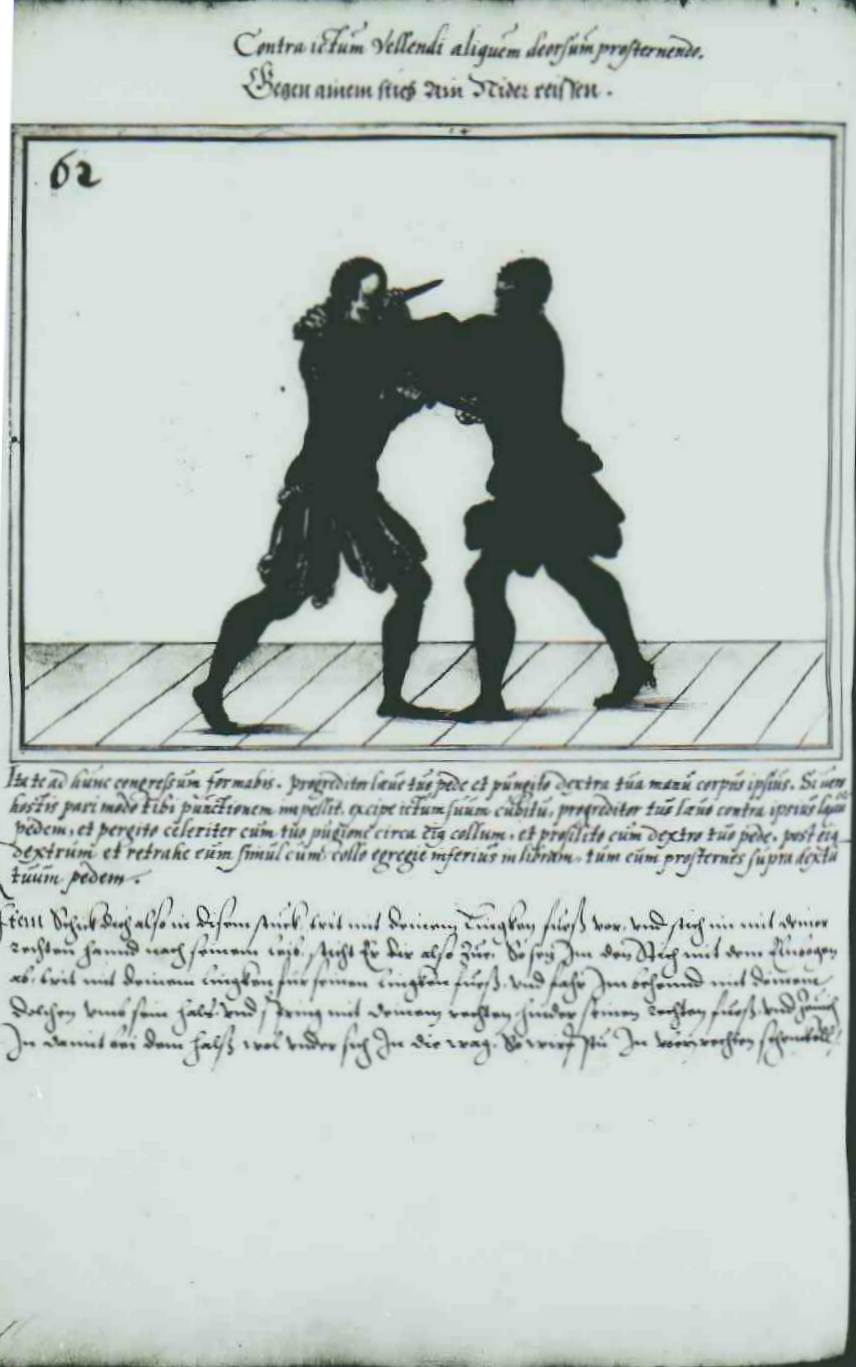 Contra ictum Vellendi aliquem deorsum prosternendo.
Gegen ainem stich Ain Nider reissen.
62
Ita te ad hunc congressum formabis. progreditor laeuo tuo pede et pungito dextra tua manu corpus ipsius. Si uero
hostis pari modo tibi punctionem impellit, excipe ictum suum cubitu, progreditor tuo laeuo contra ipsius laeuum
pedem, et pergito celeriter cum tuo pugione circa eiq collum, et prosilito cum dextro tuo pede, post eiq
dextrum et retrahe eum simul cum collo egregie inferius in libram, tum eum prosternes supra dextrum
tuum pedem.
Item Schick dich also in disem stuck trit mit deinem Lingken fuess vor, vnd stich im mit deiner
rechten hannd nach seinem leib, sticht Er dir also Zue, So setz Im den Stich mit dem Elnbogen
ab, trit mit deinem Lingken fur seinen Lingken fuess, vnd fahr Im behennd mit deinem
dolchen vmb sein hals vnd spring mit deinem rechten hinder seinen rechten fuess vnd
In damit bei dem halss wol vnder sich In die wag, So wirfstu In rechten schenckel.